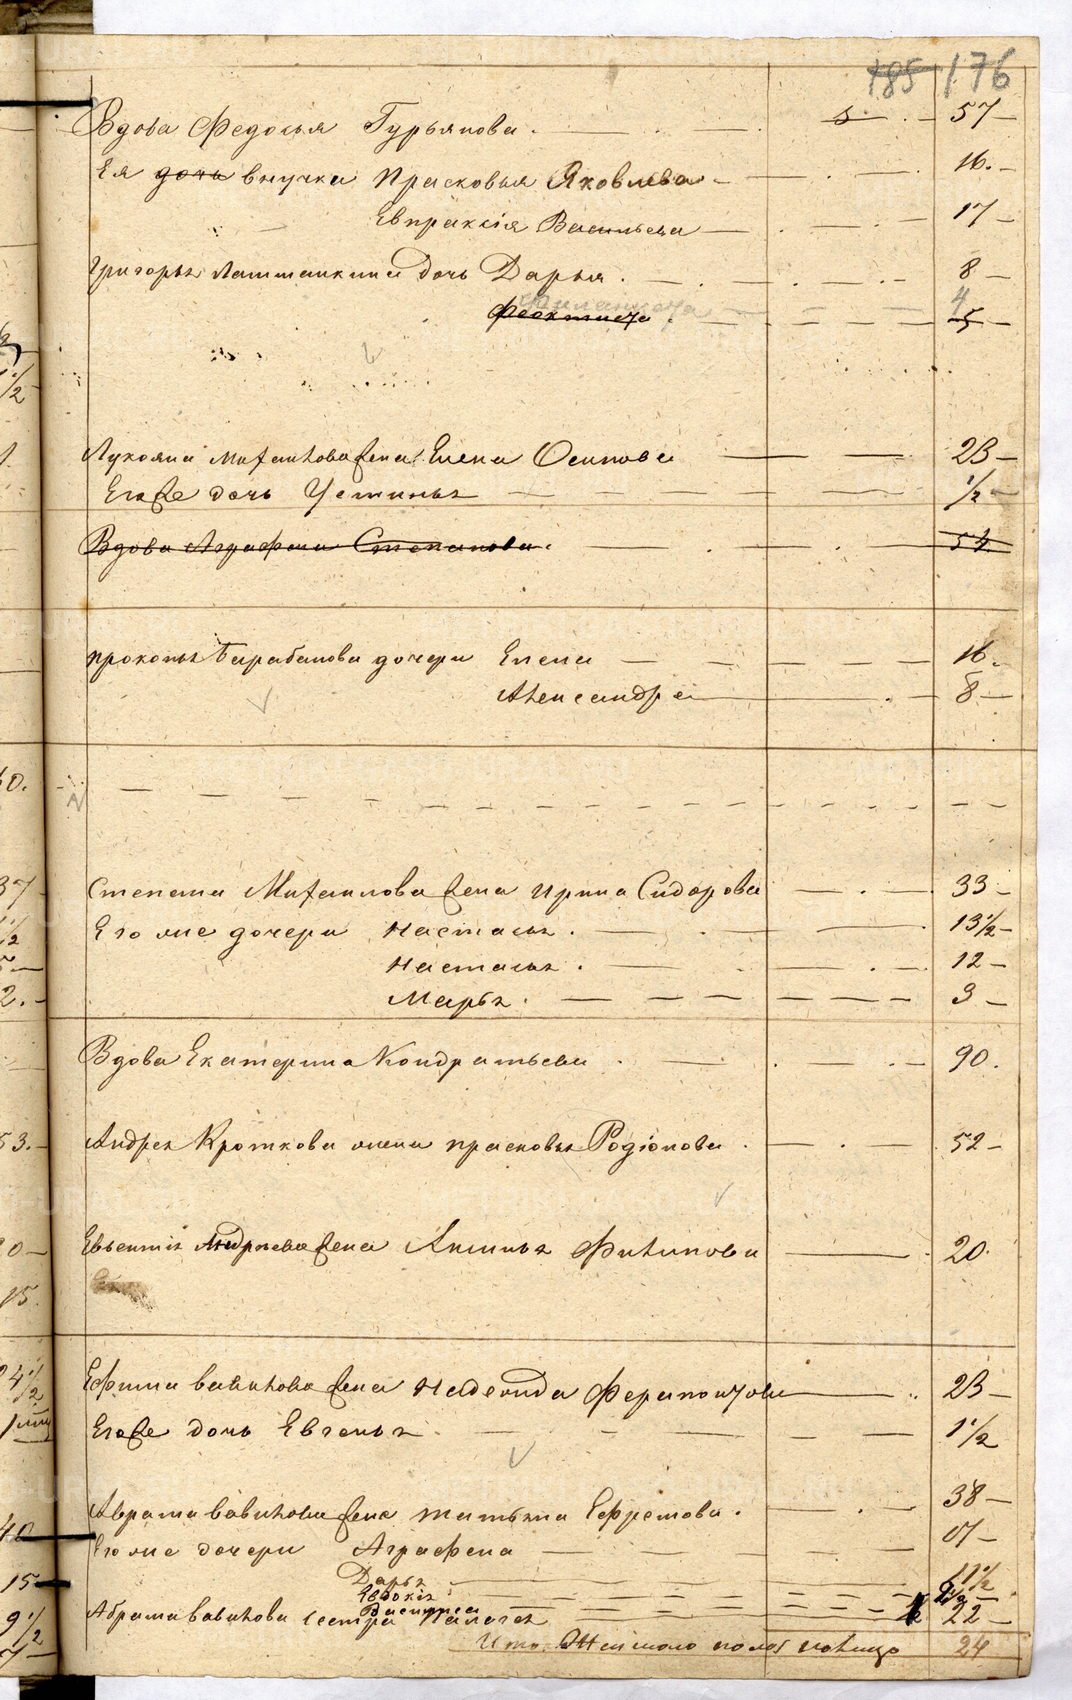 185 176
Вдова Федосья Гурьянова 57
Ея дочь внучка Прасковья Яковлева 16
Евпраксія Васильева 17
Григорья Латтанкина дочь Дарья 8
Феоктиста 4 5
Лукояна Михайлова жена Елена Осипова 23
Его же дочь Устинья 1/2
Вдова Аграфена Степанова 54
Прокопья Барабанова дочери Елена 16
Александра 8
Степана Михаилова жена Ирина Сидорова 33
Его же дочери Настасья 13 1/2
Настасья 12
Марья 3
Вдова Екатерина Кондратьева 90
Андрея Кроткова жена Прасковья Родіонова 52
Евсентія Андреева жена Аксинья Филипова 20
Ефима Вавилова жена Надежда Ферапонтова 23
Его же дочь Евгенья 1 1/2
Аврама Вавилова жена Татьяна Ефремова 38
Его же дочери Аграфена
Дарья 11 1/2
Евдокія
Абрама Вавилова сестра Палагея 22
Итого женского пола налицо 24